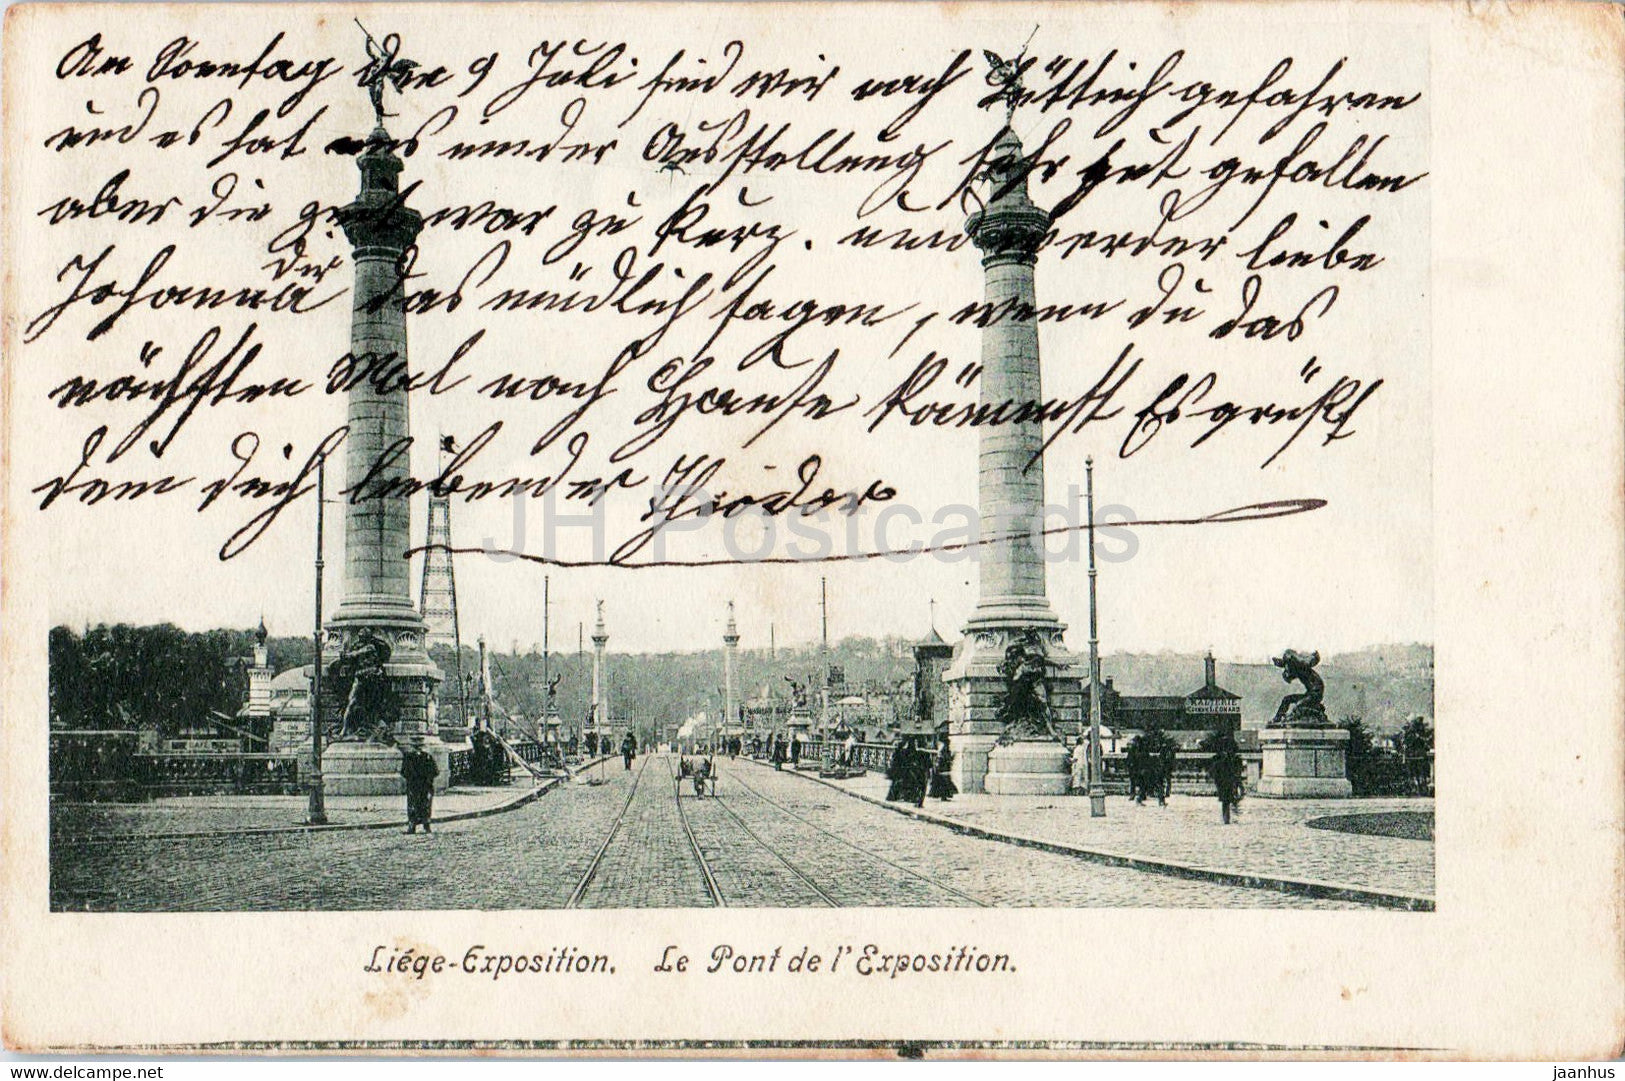 An Sonntag den 9 Juli sind wir nach Lüttich gefahren
und es hat uns in der Ausstellung sehr gut gefallen
aber die zeit war zu kurz. und werder liebe
dir
Johanna das mündlich sagen, wenn du das
nächsten Mal nach Hause kämmst Es grüßt
dein dich liebender Theodor
JH Postcards
BRASSERIE
CAFE
Liége-Exposition. Le Pont de l'Exposition.
www.delcampe.net
jaanhus